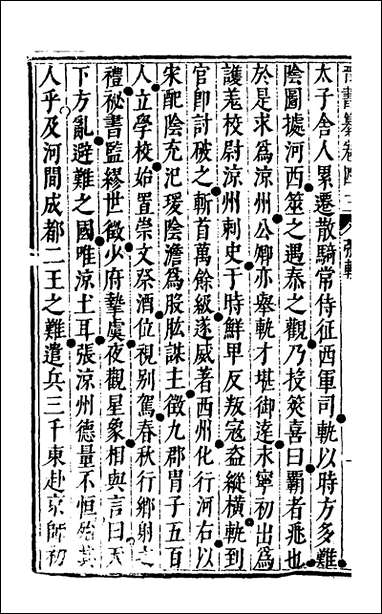 晉書纂卷四十三 張軌
太子舍人累遷散騎常侍征西軍司軌以時方多難
陰圖據河西筮之遇泰之觀乃投筴喜曰霸者兆也
於是求爲涼州公卿亦舉軌才堪御遠永寧初出爲
護羗校尉涼州刺史于時鮮卑反叛寇盗縱橫軌到
官卽討破之斬首萬餘級遂威著西州化行河右以
宋配陰充氾瑗陰澹爲股肱謀主徵九郡胄子五百
人立學校始置崇文祭酒位視別駕春秋行鄉射之
禮祕書監繆世徵少府摯虞夜觀星象相與言曰天
下方亂避難之國唯涼土耳張涼州德量不恒殆其
人乎及河間成都二王之難遣兵三千東赴京師初